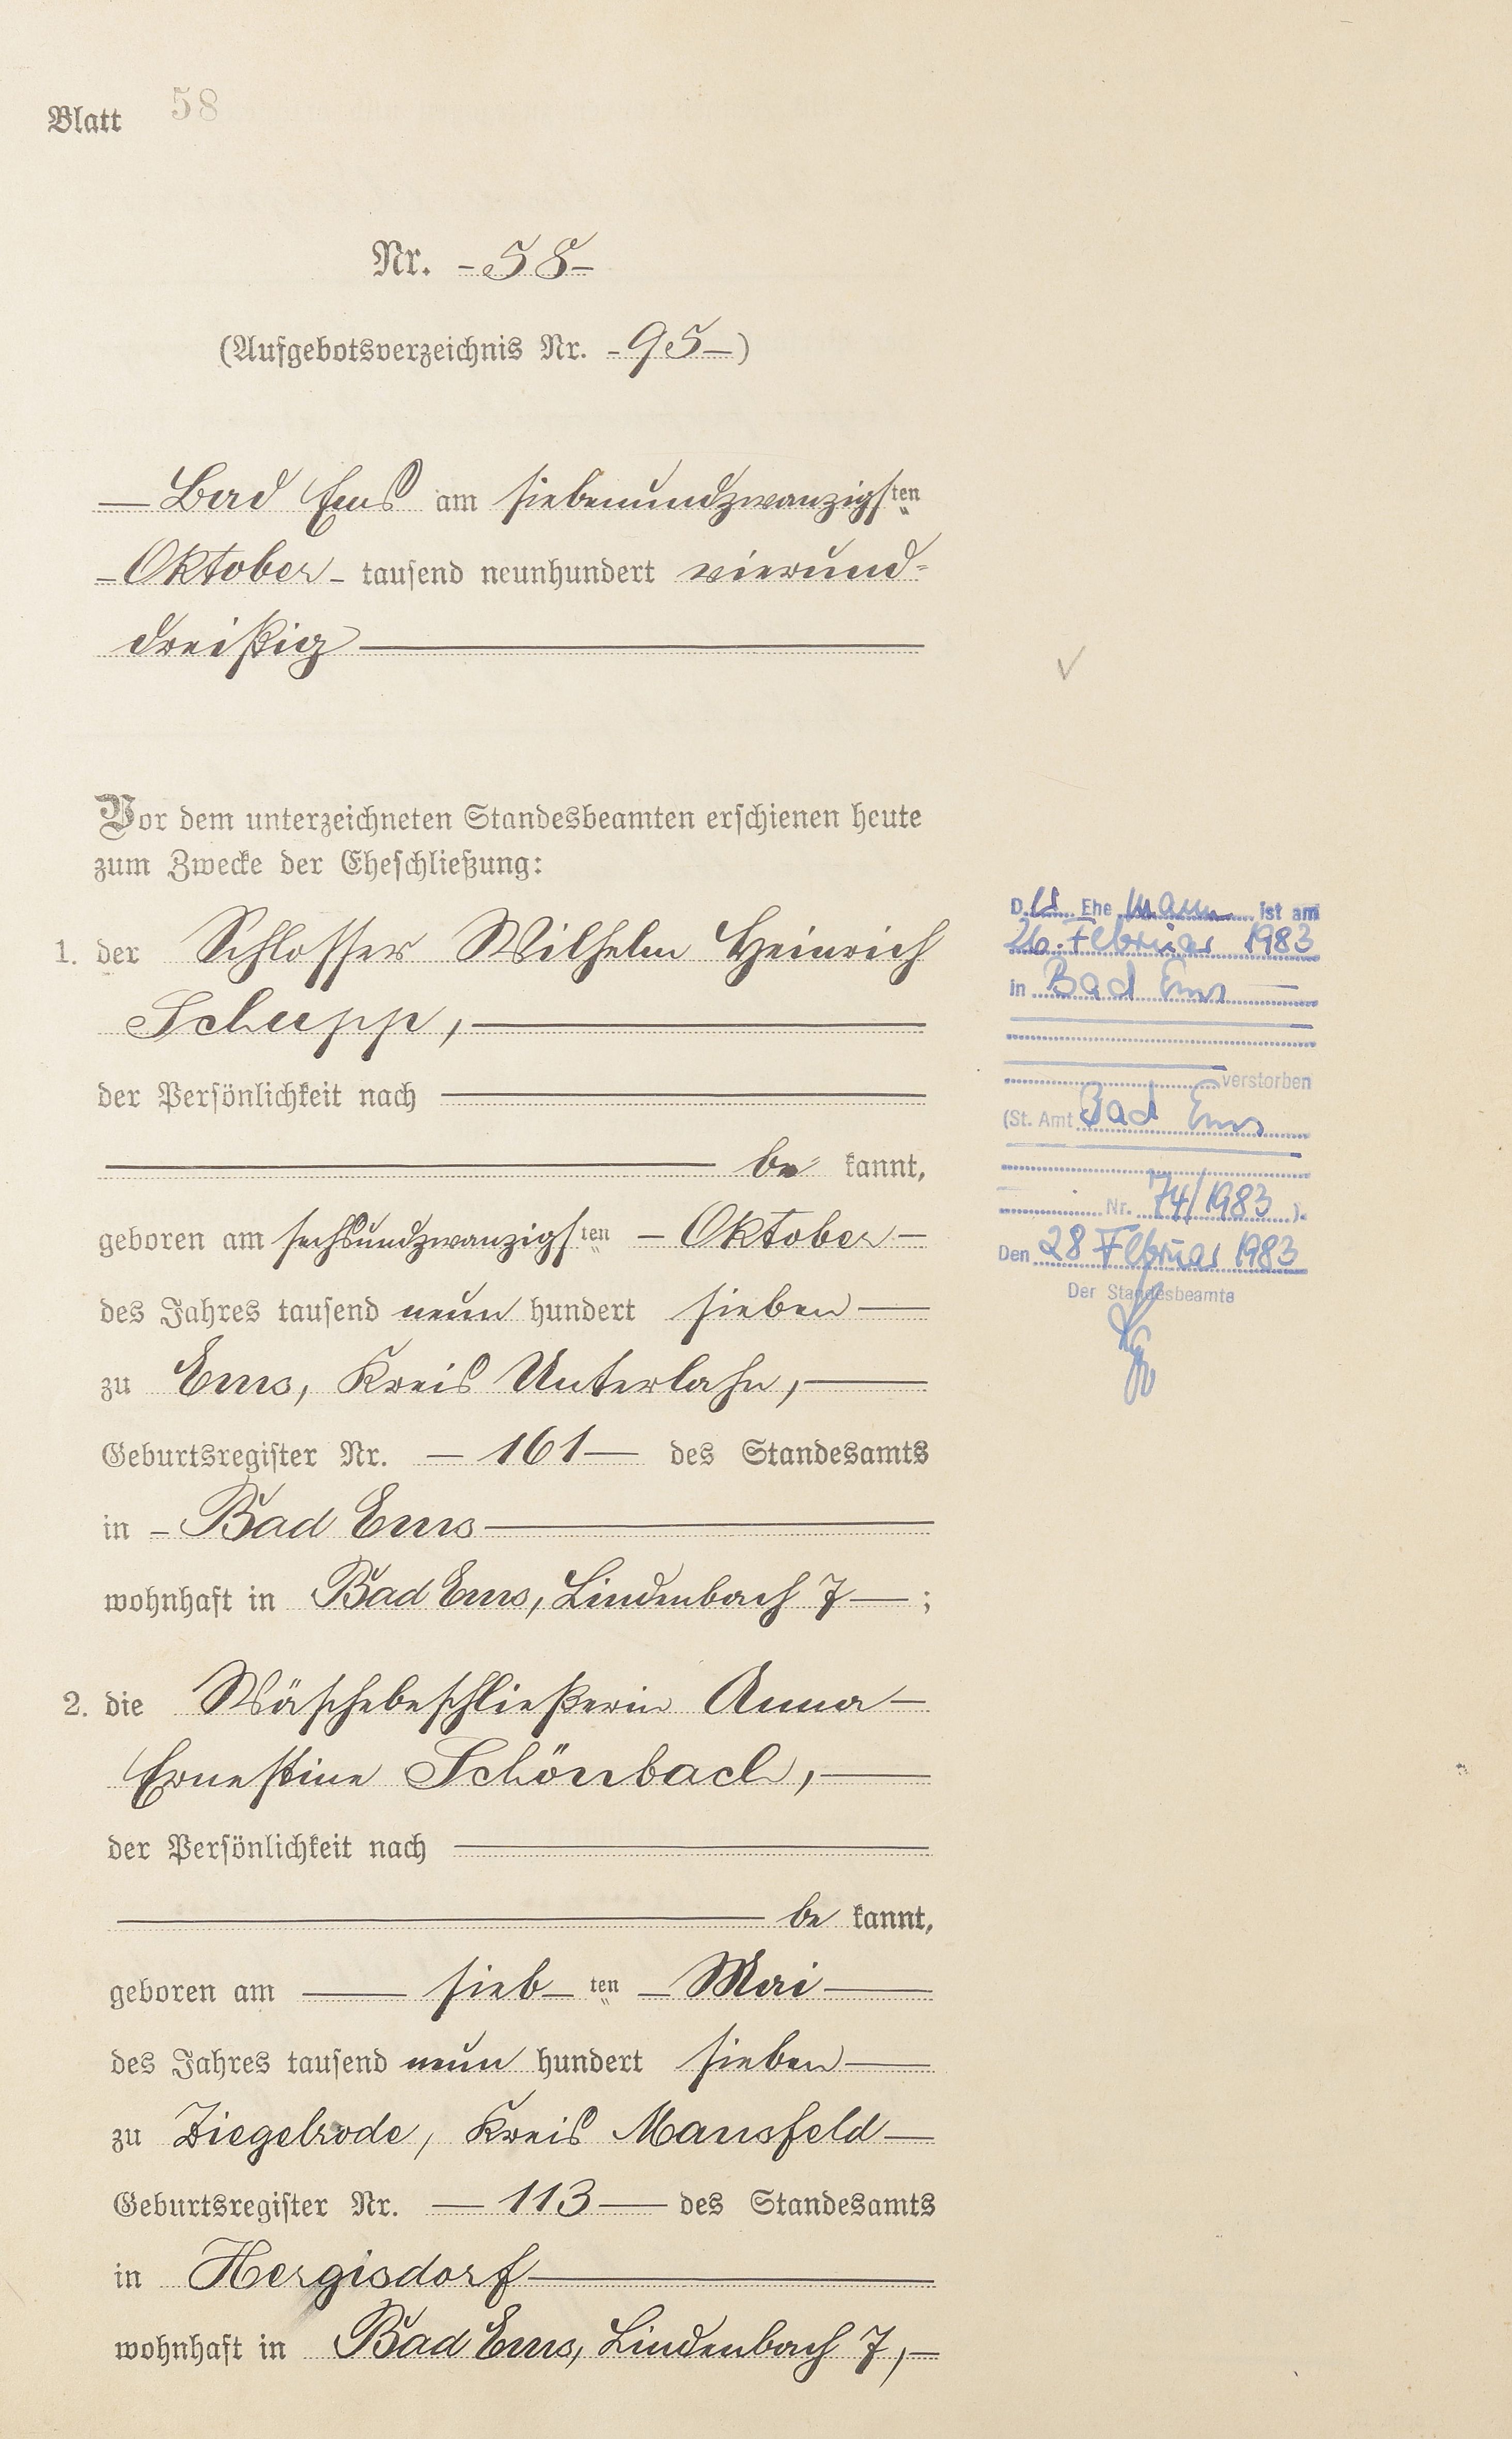 Blatt 58
Nr. - 58 -
(Aufgebotsverzeichnis Nr. - 95 -)
— Bad Ems am siebenundzwanzigsten
- Oktober - tausend neunhundert vierund-
dreißig —
Vor dem unterzeichneten Standesbeamten erschienen heute
zum Zwecke der Eheschließung:
1. der Schlosser Wilhelm Heinrich
Schupp, —
der Persönlichkeit nach —
— be kannt,
geboren am sechsundzwanzigsten - Oktober -
des Jahres tausend neun hundert sieben —
zu Ems, Kreis Unterlahn, —
Geburtsregister Nr. — 161 — des Standesamts
in - Bad Ems —
wohnhaft in Bad Ems, Lindenbach 7 — ;
2. die Wäschebeschließerin Anna —
Ernestine Schönbach, —
der Persönlichkeit nach —
— be kannt,
geboren am — sieb - ten - Mai —
des Jahres tausend neun hundert sieben —
zu Ziegelrode, Kreis Mansfeld —
Geburtsregister Nr. — 113 — des Standesamts
in Hergisdorf —
wohnhaft in Bad Ems, Lindenbach 7, —
D er Ehe mann ist am
26. Februar 1983
in Bad Ems —
verstorben
(St. Amt Bad Ems
Nr. 74/1983 ).
Den 28 Februar 1983
Der Standesbeamte